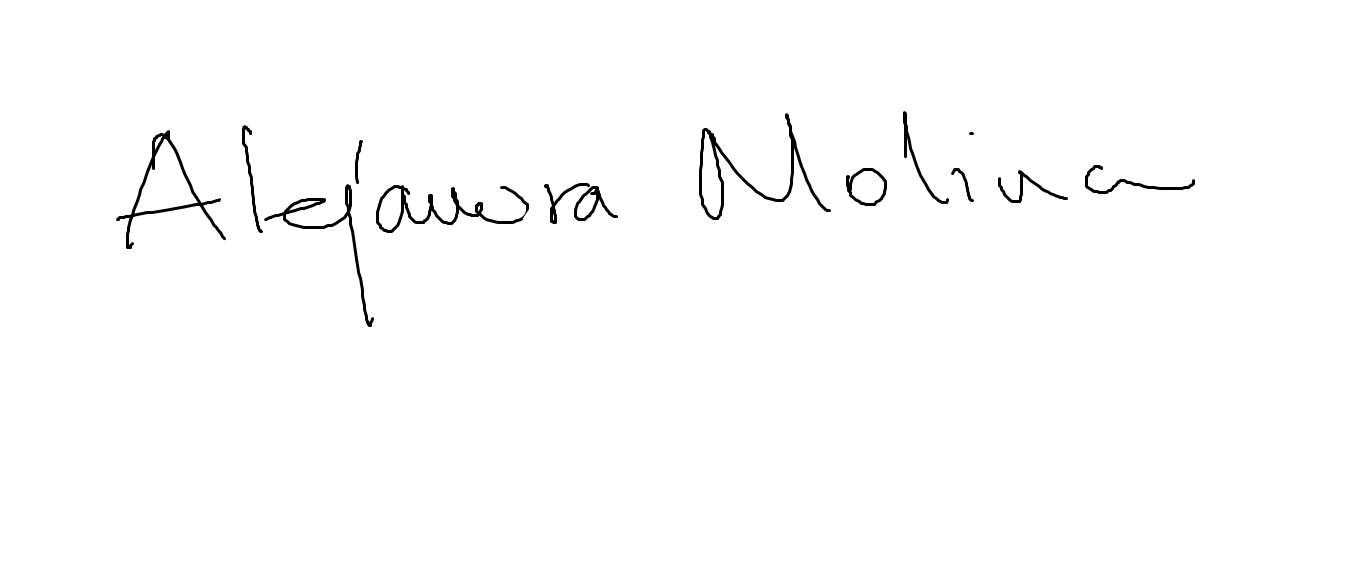 Alejandra Molina